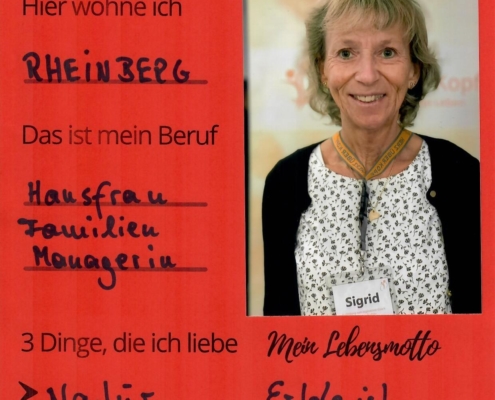 Hier wohne ich
RHEINBERG
Das ist mein Beruf
Hausfrau
Familien
Managerin
Sigrid
3 Dinge, die ich liebe
Mein Lebensmotto
➤ Natur